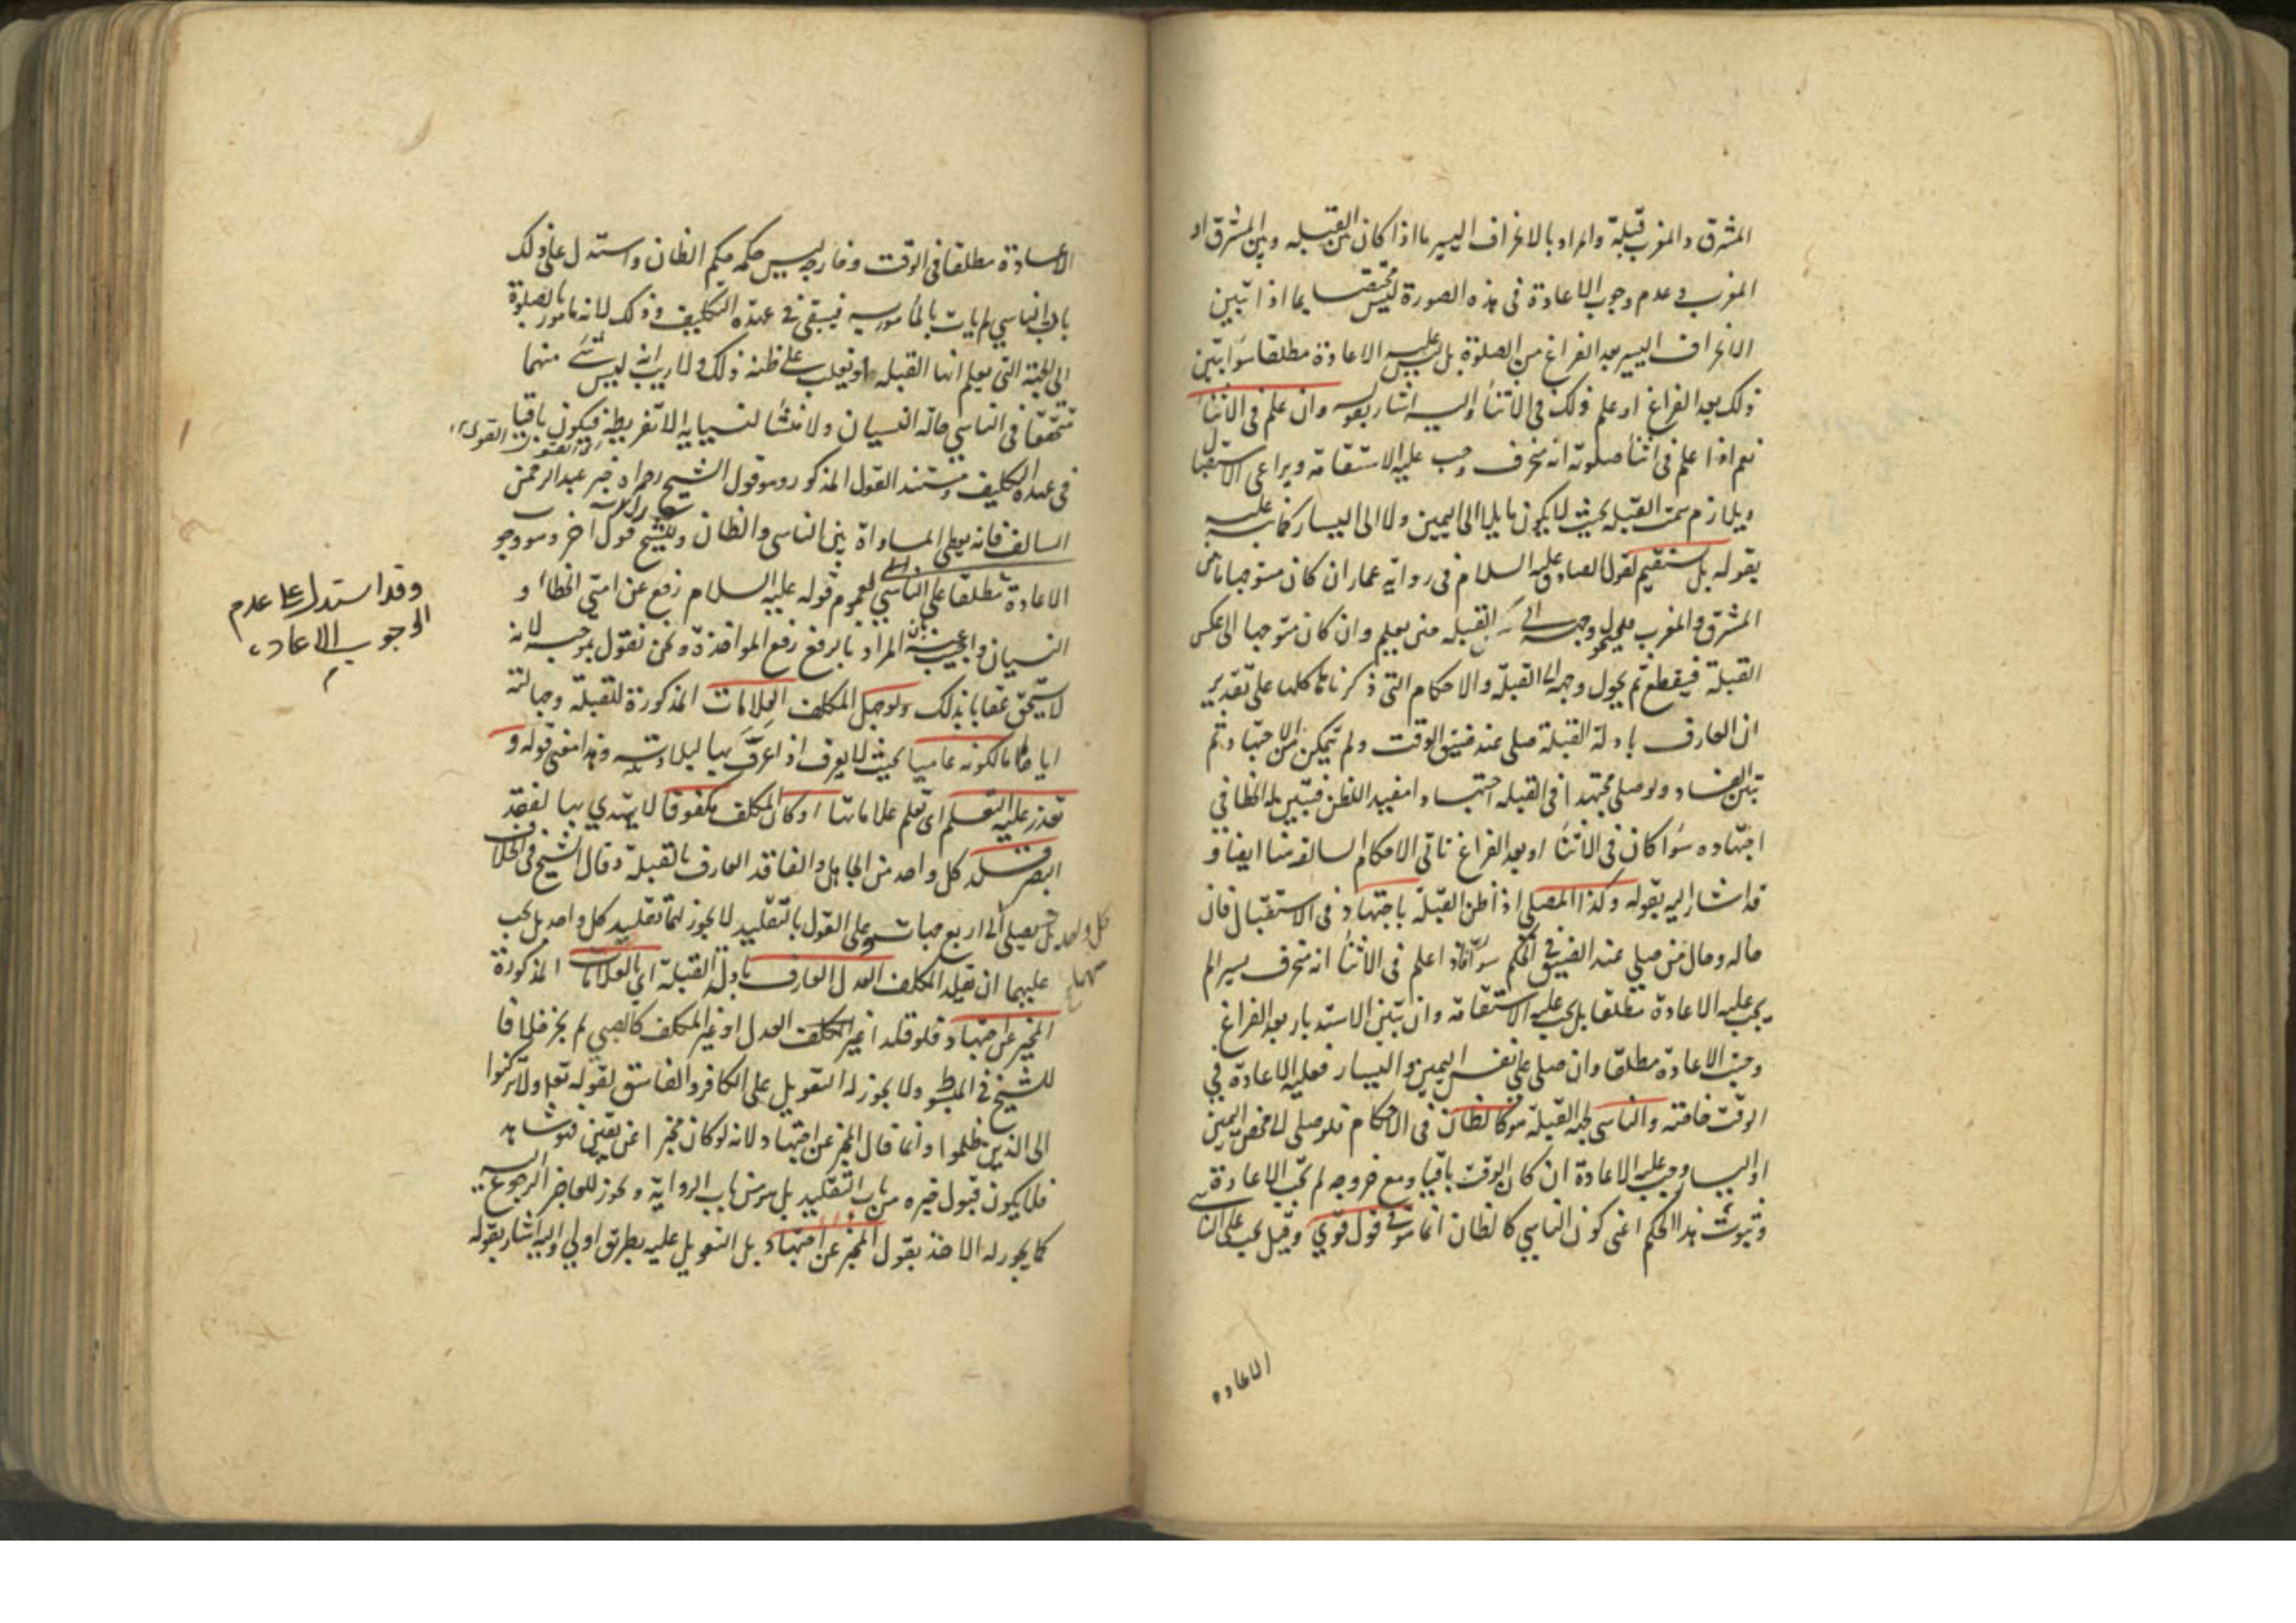 المشرق والمغرب قبلة والمراد بالانحراف اليسير ما اذا كان بين القبله وبين المشرق او
المغرب وعدم وجوب الاعادة فى هذه الصورة ليس مختصا بما اذا تبين
الانحراف اليسير بعد الفراغ من الصلوة بل ليس عليه الاعادة مطلقا سواء تبين
ذلك بعد الفراغ او علم ذلك فى الاثناء واليه اشار بقوله وان علم فى الاثناء
نعم اذا علم فى اثناء صلوته انه منحرف وجب عليه الاستقامة ويراعى الاستقبال
ويلازم سمت القبله بحيث لا يكون مايلا الى اليمين ولا الى اليسار كما نبه عليه
بقوله بل يستقيم لقول الصادق عليه السلام فى رواية عمار ان كان متوجها ما بين
المشرق والمغرب فليحول وجهه الى القبله حين يعلم وان كان متوجها الى عكس
القبلة فيقطع ثم يحول وجهه الى القبلة والاحكام التى ذكرناها كلها على تقدير
ان العارف بادلة القبلة صلى عند ضيق الوقت ولم يتمكن من الاجتهاد ثم
تبين الفساد ولو صلى مجتهدا فى القبله اجتهادا مفيد الظن فتبين له الخطا فى
اجتهاده سواء كان فى الاثناء او بعد الفراغ تاتى الاحكام السالفة هنا ايضا و
قد اشار اليه بقوله وكذا المصلى اذا ظن القبلة باجتهاد فى الاستقبال فان
حاله وحال من صلى عند الضيق فى الحكم سواء فاذا علم فى الاثناء انه منحرف يسيرا لم
يجب عليه الاعادة مطلقا بل يجب عليه الاستقامة وان تبين الاستدبار بعد الفراغ
وجبت الاعادة مطلقا وان صلى على نفس اليمين واليسار فعليه الاعادة فى
الوقت خاصة والناسى لجهة القبلة هو كالظان فى الاحكام فلو صلى الى محض اليمين
او اليسار وجب عليه الاعادة ان كان الوقت باقيا ومع خروجه لم تجب الاعادة
وثبوت هذا الحكم اعنى كون الناسى كالظان انما هو فى قول قوى وقيل يجب على الناسى
الاعاده
الاعادة مطلقا فى الوقت وخارجه ليس حكمه حكم الظان واستدل على ذلك
بان الناسي لم يات بالمأمور به فيبقى فى عهدة التكليف وذلك لانه مامور بالصلوة
الى الجهة التى يعلم انها القبله او يغلب على ظنه ذلك ولا ريب انه ليس شئ منهما
متحققا فى الناسي حالة النسيان ولا منشأ لنسيانه الا تفريطه فيكون باقيا
فى عهدة التكليف ومستند القول المذكور وهو قول الشيخ رحمه الله خبر عبد الرحمن
السالف فانه يعطى المساواة بين الناسى والظان وللشيخ قول اخر وهو وجوب
الاعادة مطلقا على الناسي لعموم قوله عليه السلام رفع عن امتى الخطاء و
النسيان واجيب عنه بان المراد بالرفع رفع المواخذة ونحن نقول بموجبه لانه
لا يستحق عقابا بذلك ولو جهل المكلف العلامات المذكورة للقبلة وجهالته
اياها اما لكونه عاميا بحيث لا يعرف اذا عرف بها لبلادته وهذا معنى قوله و
تعذر عليه التعلم اى تعلم علاماتها او كان المكلف مكفوفا لا يهتدي بها لفقد
البصر قلد كل واحد من الجاهل والفاقد العارف بالقبلة وقال الشيخ فى الخلاف
بل يصلى الى اربع جهات وعلى القول بالتقليد لا يجوز لهما تقليد كل واحد بل يجب
عليهما ان يقلد المكلف العدل العارف بادلة القبلة اى بالعلامات المذكورة
المخبر عن اجتهاد فلو قلد غير المكلف العدل او غير المكلف كالصبي لم يجز خلافا
للشيخ فى المبسوط ولا يجوز له التعويل على الكافر والفاسق لقوله تعالى ولا تركنوا
الى الذين ظلموا وانما قال المخبر عن اجتهاد لانه لو كان مخبرا عن يقين فهو شاهد
فلا يكون قبول خبره من باب التقليد بل هو من باب الرواية ويجوز للعاجز الرجوع اليه
كما يجوز له الاخذ بقول المخبر عن اجتهاد بل التعويل عليه بطريق اولى واليه اشار بقوله
وقد استدل على عدم
الوجوب الاعاده